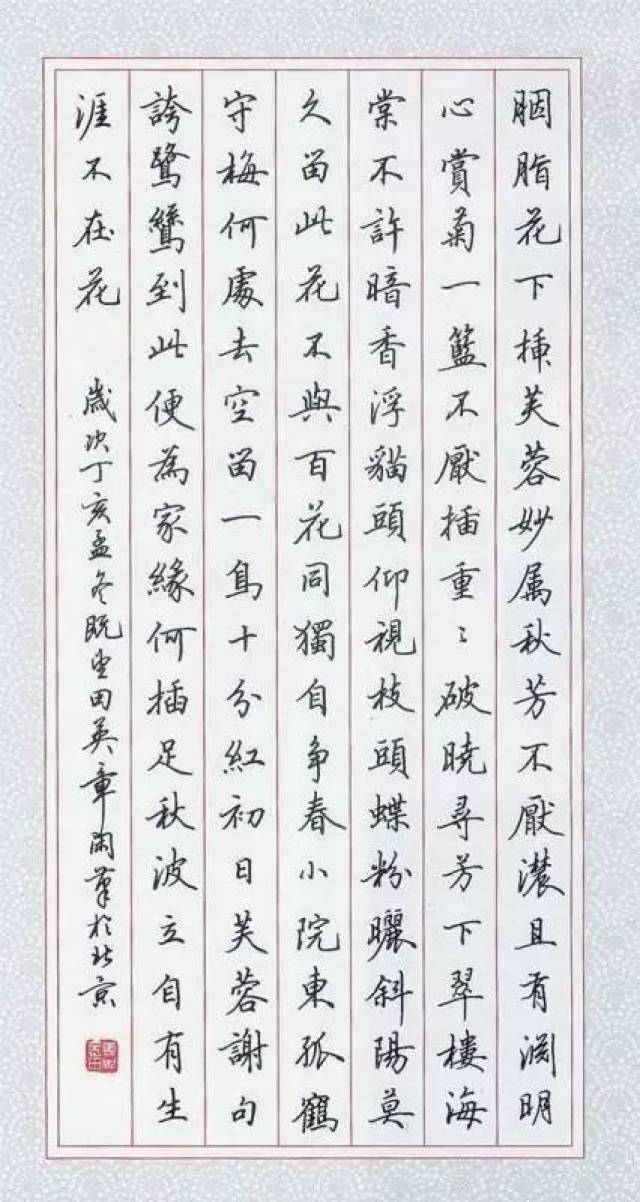 胭脂花下揷芙蓉妙属秋芳不厭濃且有渊明
心賞菊一籃不厭插重〻破曉尋芳下翠樓海
棠不許暗香浮貓頭仰視枝頭蝶粉曬斜陽莫
久留此花不與百花同獨自争春小院東孤鶴
守梅何處去空留一鳥十分紅初日芙蓉謝句
誇鷺鷥到此便為家緣何插足秋波立自有生
涯不在花
歲次丁亥孟冬既望田英章閑筆於北京